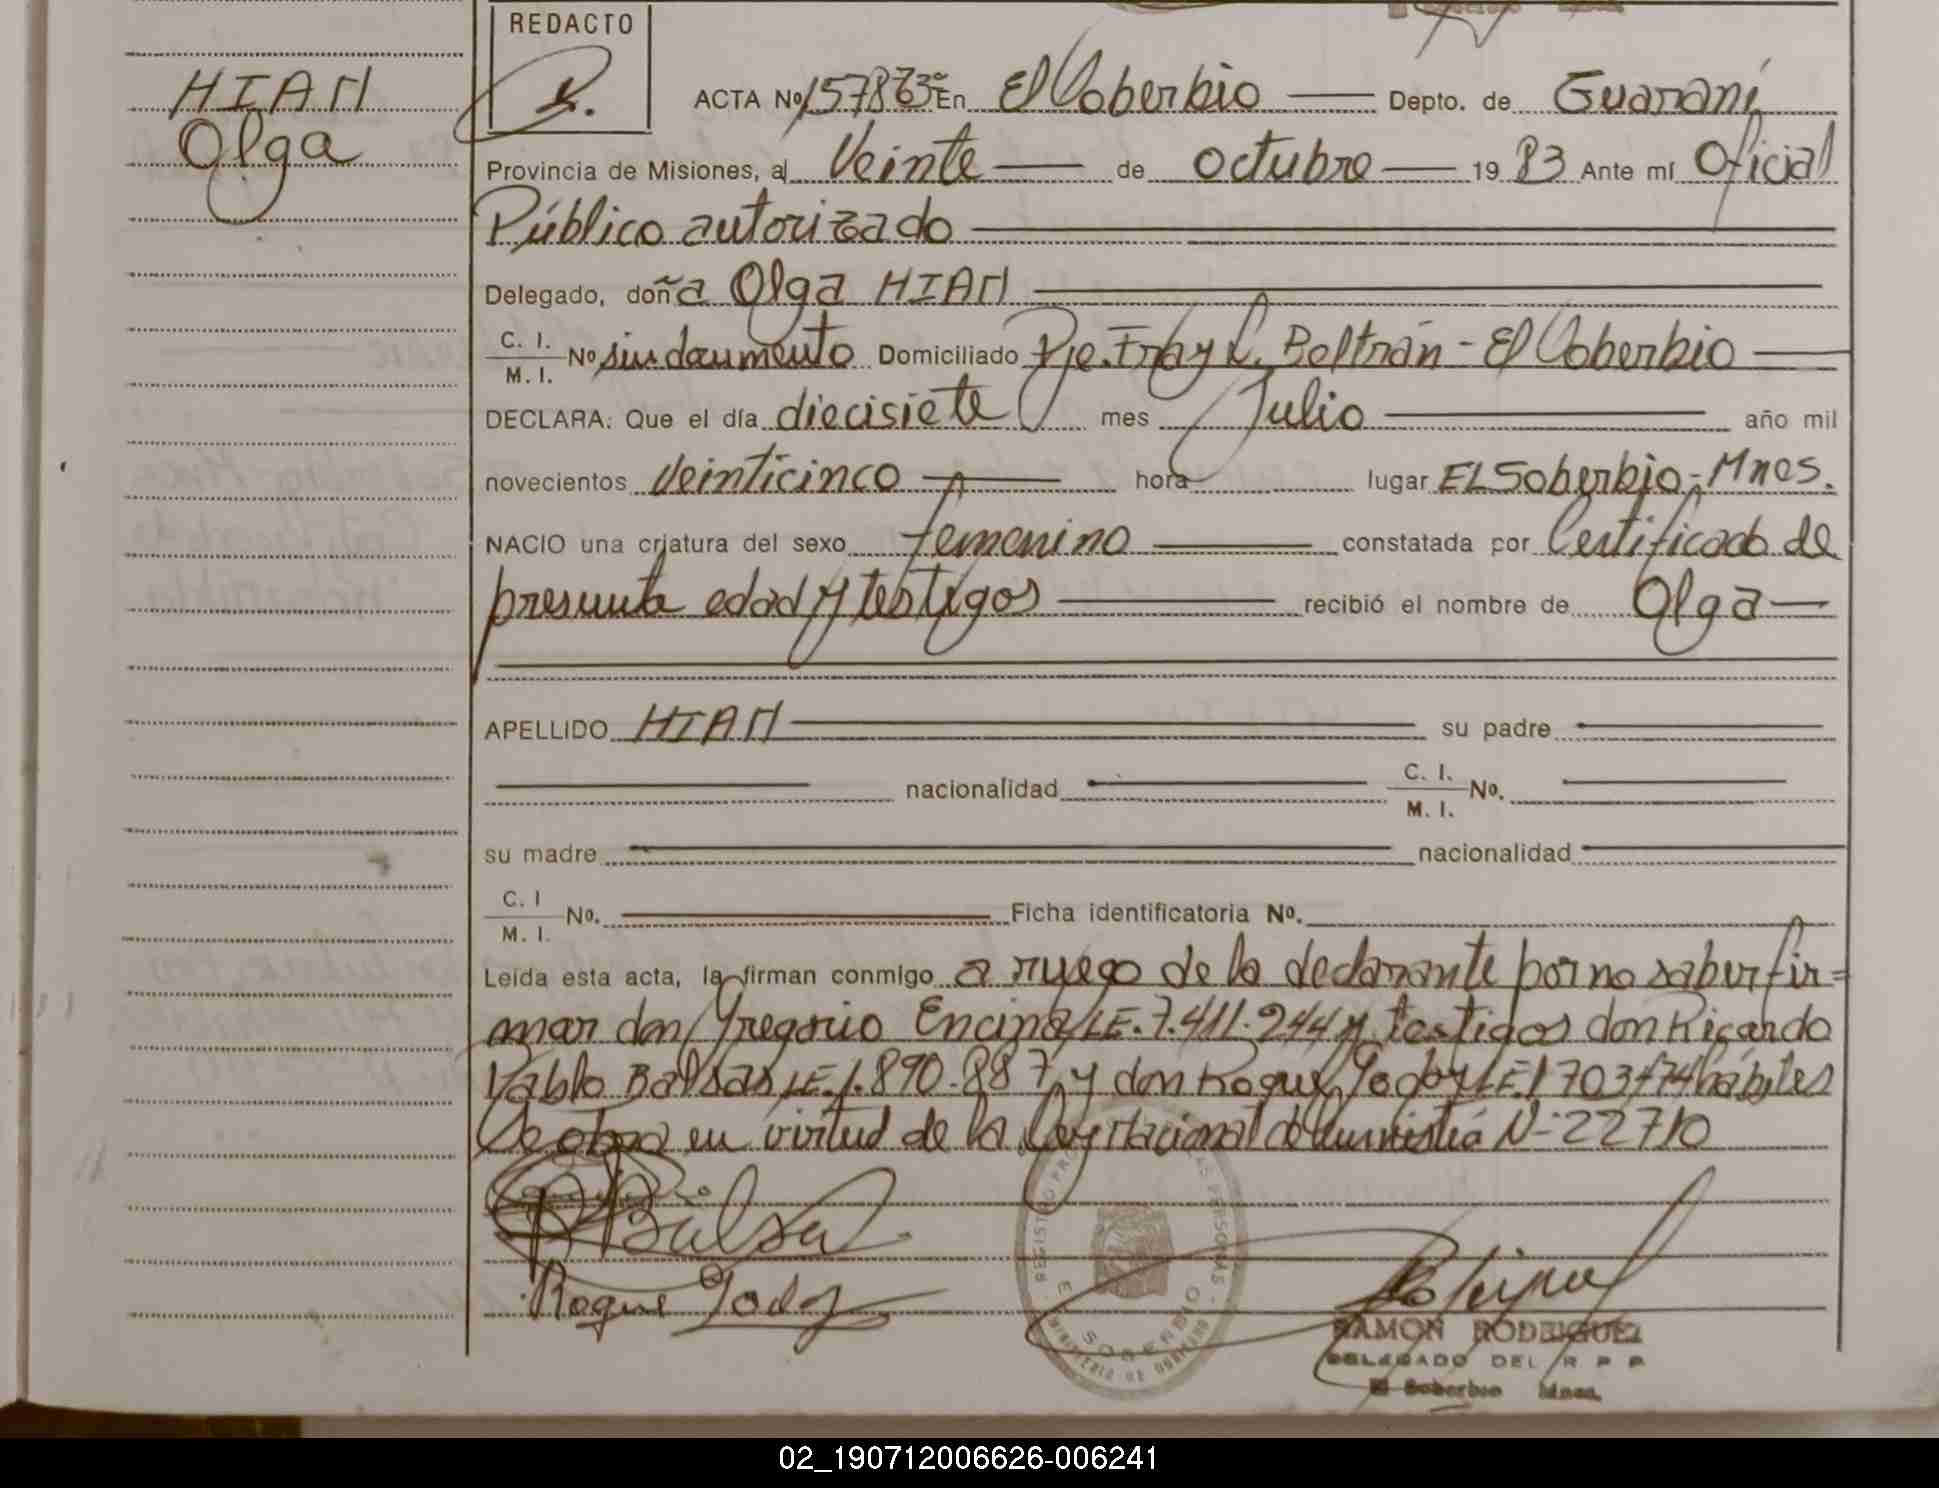 REDACTO
HIAN
Olga
ACTA Nº 1578 En El Soberbio Depto. de Guaraní
Provincia de Misiones, al Veinte de octubre 19 83 Ante mí Oficial
Público autorizado
Delegado, doña Olga HIAN
C. I.
M. I. Nº sin documento Domiciliado Pje. Fray L. Beltrán - El Soberbio
DECLARA: Que el día diecisiete mes Julio año mil
novecientos Veinticinco hora lugar EL Soberbio - Mnes.
NACIO una criatura del sexo femenino constatada por Certificado de
presunta edad y testigos recibió el nombre de Olga
APELLIDO HIAN su padre
nacionalidad C. I.
M. I. No.
su madre nacionalidad
C. I
M. I. No. Ficha identificatoria No.
Leída esta acta, la firman conmigo a ruego de la declarante por no saber fir=
mar don Gregorio Encina LE. 7.411.244 y testigos don Ricardo
Pablo Balsas LE. 1.890.887 y don Roque Godoy LE 1703474 hábiles
Se obra en virtud de la Ley Nacional de Amnistía N- 22710
Roque Godoy
RAMON RODRIGUEZ
DELEGADO DEL R P P
El Soberbio Mnes.
02_190712006626-006241